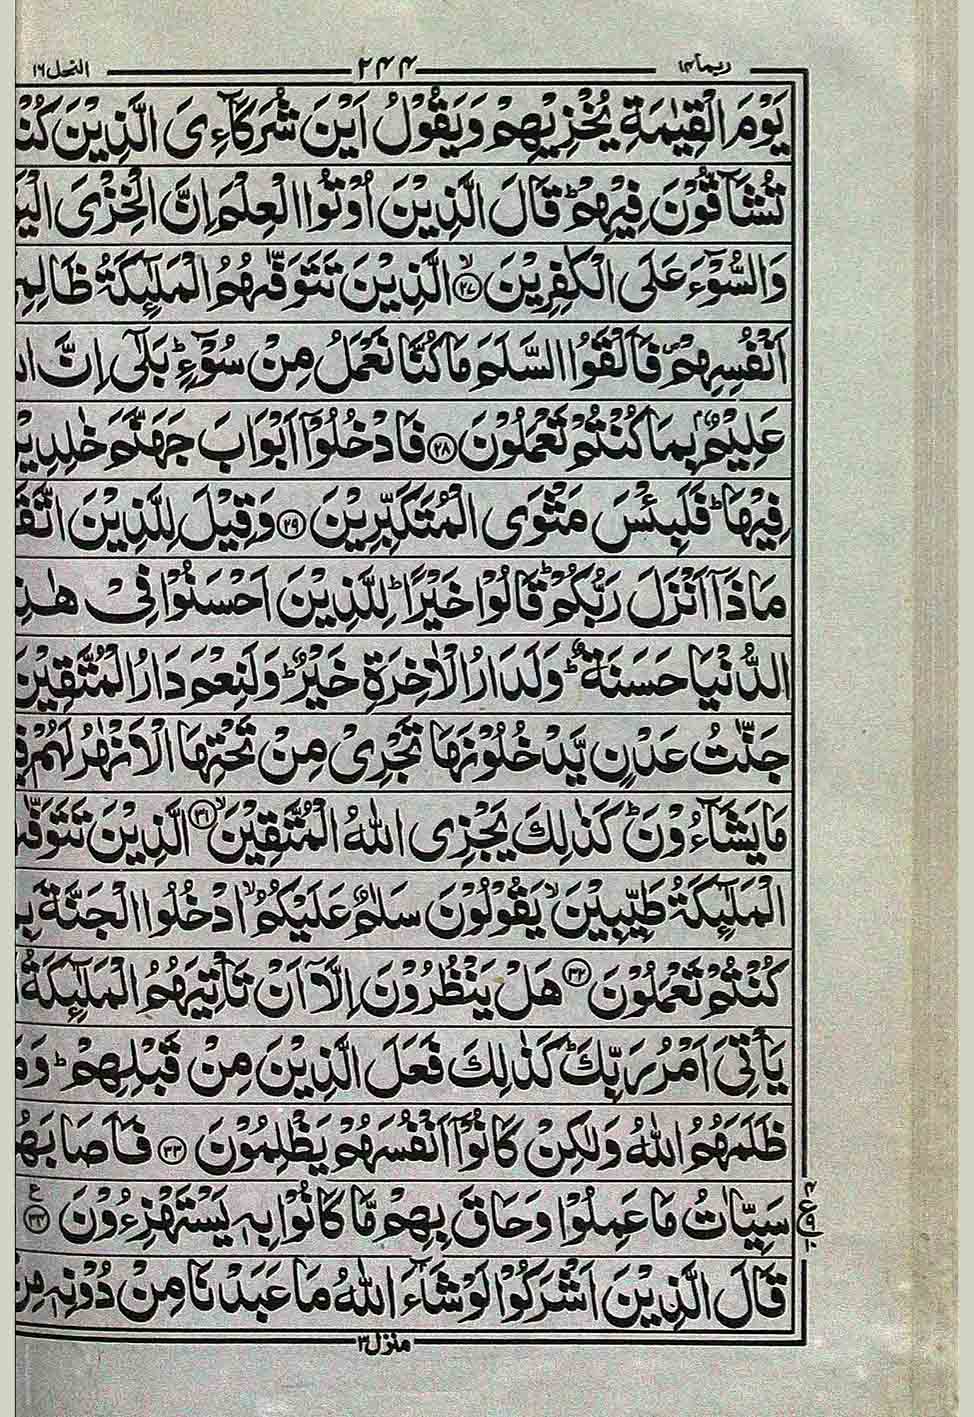 ربما ١٤ ٢٤٤ النحل ١٦
يَوْمَ الْقِيٰمَةِ يُخْزِيْهِمْ وَيَقُوْلُ اَيْنَ شُرَكَآءِيَ الَّذِيْنَ
تُشَآقُّوْنَ فِيْهِمْ ؕ قَالَ الَّذِيْنَ اُوْتُوا الْعِلْمَ اِنَّ الْخِزْيَ
وَالسُّوْٓءَ عَلَى الْكٰفِرِيْنَ ۙ﴿٢٧﴾ الَّذِيْنَ تَتَوَفّٰىهُمُ الْمَلٰٓئِكَةُ
اَنْفُسِهِمْ ۪ فَاَلْقَوُا السَّلَمَ مَا كُنَّا نَعْمَلُ مِنْ سُوْٓءٍ ؕ بَلٰٓى اِنَّ
عَلِيْمٌۢ بِمَا كُنْتُمْ تَعْمَلُوْنَ ﴿٢٨﴾ فَادْخُلُوْٓا اَبْوَابَ جَهَنَّمَ
فِيْهَا ؕ فَلَبِئْسَ مَثْوَى الْمُتَكَبِّرِيْنَ ﴿٢٩﴾ وَقِيْلَ لِلَّذِيْنَ
مَاذَآ اَنْزَلَ رَبُّكُمْ ؕ قَالُوْا خَيْرًا ؕ لِلَّذِيْنَ اَحْسَنُوْا فِيْ
الدُّنْيَا حَسَنَةٌ ؕ وَلَدَارُ الْاٰخِرَةِ خَيْرٌ ؕ وَلَنِعْمَ دَارُ الْمُتَّقِيْنَ
جَنّٰتُ عَدْنٍ يَّدْخُلُوْنَهَا تَجْرِيْ مِنْ تَحْتِهَا الْاَنْهٰرُ لَهُمْ
مَا يَشَآءُوْنَ ؕ كَذٰلِكَ يَجْزِي اللّٰهُ الْمُتَّقِيْنَ ۙ﴿٣١﴾ الَّذِيْنَ
الْمَلٰٓئِكَةُ طَيِّبِيْنَ ۙ يَقُوْلُوْنَ سَلٰمٌ عَلَيْكُمُ ۙ ادْخُلُوا الْجَنَّةَ
كُنْتُمْ تَعْمَلُوْنَ ﴿٣٢﴾ هَلْ يَنْظُرُوْنَ اِلَّآ اَنْ تَاْتِيَهُمُ الْمَلٰٓئِكَةُ
يَاْتِيَ اَمْرُ رَبِّكَ ؕ كَذٰلِكَ فَعَلَ الَّذِيْنَ مِنْ قَبْلِهِمْ ؕ
ظَلَمَهُمُ اللّٰهُ وَلٰكِنْ كَانُوْٓا اَنْفُسَهُمْ يَظْلِمُوْنَ ﴿٣٣﴾ فَاَصَابَهُمْ
سَيِّاٰتُ مَا عَمِلُوْا وَحَاقَ بِهِمْ مَّا كَانُوْا بِهٖ يَسْتَهْزِءُوْنَ ﴿٣٤﴾ ع
قَالَ الَّذِيْنَ اَشْرَكُوْا لَوْ شَآءَ اللّٰهُ مَا عَبَدْنَا مِنْ دُوْنِهٖ
منزل ٣